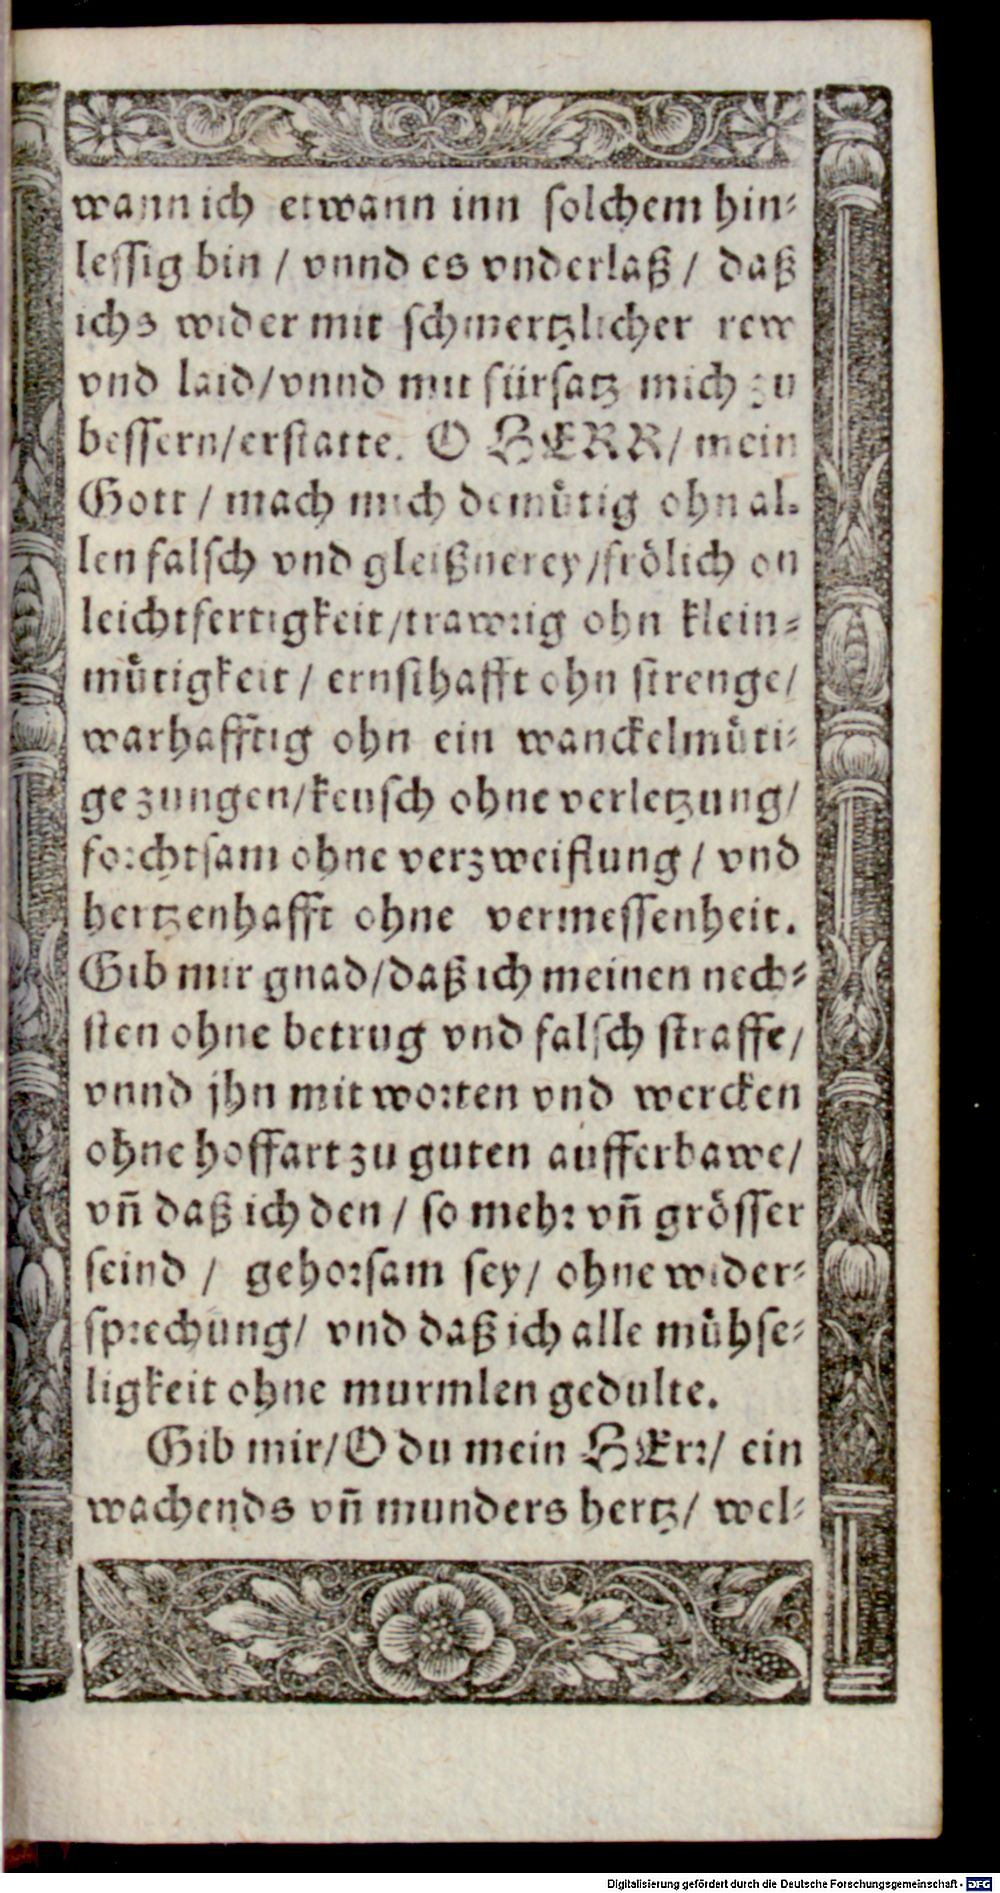 wann ich etwann inn solchem hin⸗
lessig bin / vnnd es vnderlaß / daß
ichs wider mit schmertzlicher rew
vnd laid/vnnd mit fürsatz mich zu
bessern/erstatte. O HERR/ mein
Gott / mach mich demütig ohn al⸗
len falsch vnd gleißnerey/frölich on
leichtfertigkeit/trawrig ohn klein⸗
mütigkeit / ernsthafft ohn strenge/
warhafftig ohn ein wanckelmüti⸗
ge zungen/keusch ohne verletzung/
forchtsam ohne verzweiflung / vnd
hertzenhafft ohne vermessenheit.
Gib mir gnad/daß ich meinen nech⸗
sten ohne betrug vnd falsch straffe/
vnnd jhn mit worten vnd wercken
ohne hoffart zu guten aufferbawe/
vñ daß ich den / so mehr vñ grösser
seind / gehorsam sey/ ohne wider⸗
sprechung/ vnd daß ich alle mühse⸗
ligkeit ohne murmlen gedulte.
Gib mir/O du mein HErr/ ein
wachends vñ munders hertz/ wel⸗
Digitalisierung gefördert durch die Deutsche Forschungsgemeinschaft - DFG